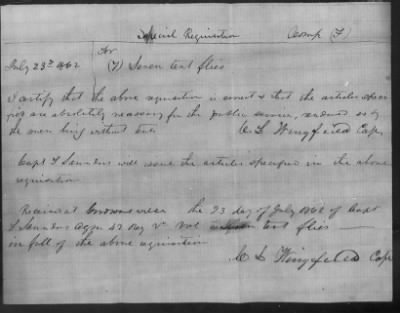 Special Requisition Comp (F)
For
July 23rd 1862 (7) Seven tent flies
I certify that the above requisition is correct & that the articles speci-
fied are absolutely necessary for the public service, rendered so by
the men being without tents C L Wingfield Capt
Capt S Saunders will issue the articles specified in the above
requisition
Received at the 23 day of July 1862 of Capt
S Saunders Va Vol tent flies
in full of the above requisition
C L Wingfield Capt